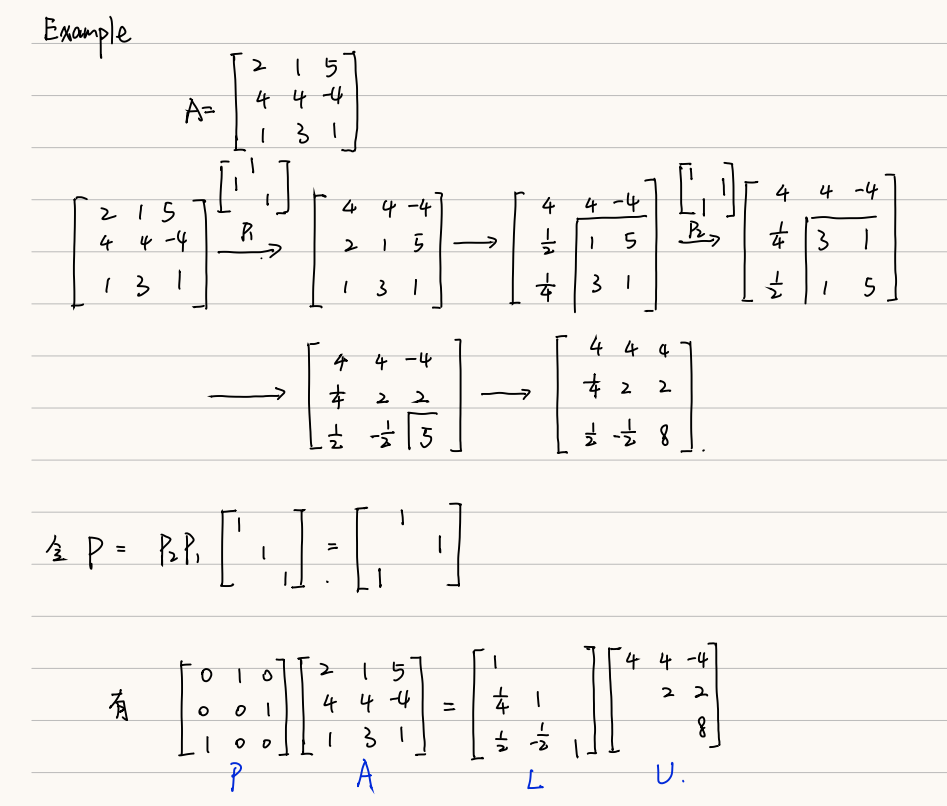 Example
A= [2 1 5
4 4 -4
1 3 1]
[2 1 5; 4 4 -4; 1 3 1] [1; 1; 1] P₁ → [4 4 -4; 2 1 5; 1 3 1] → [4 4 -4; 1/2 1 5; 1/4 3 1] [1; 1; 1] P₂ → [4 4 -4; 1/4 3 1; 1/2 1 5]
→ [4 4 -4; 1/4 2 2; 1/2 -1/2 5] → [4 4 4; 1/4 2 2; 1/2 -1/2 8].
令 P = P₂P₁ [1; 1; 1] . = [1; 1; 1]
有 [0 1 0; 0 0 1; 1 0 0] [2 1 5; 4 4 -4; 1 3 1] = [1; 1/4 1; 1/2 -1/2 1] [4 4 -4; 2 2; 8]
P A L U.